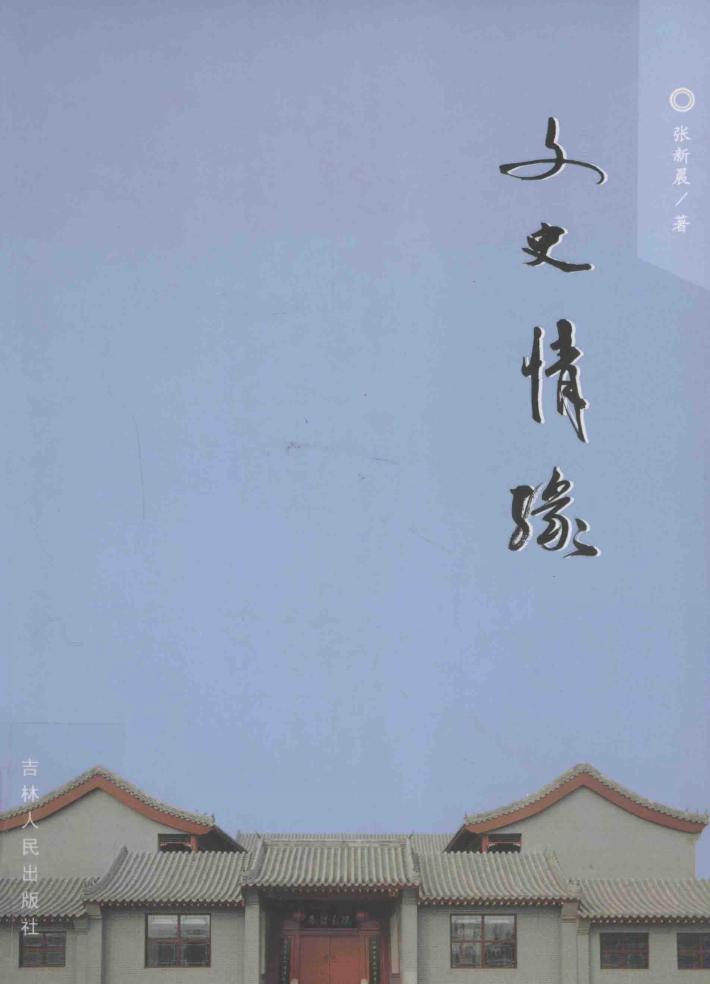 张新晨／著
文史情缘
吉林人民出版社